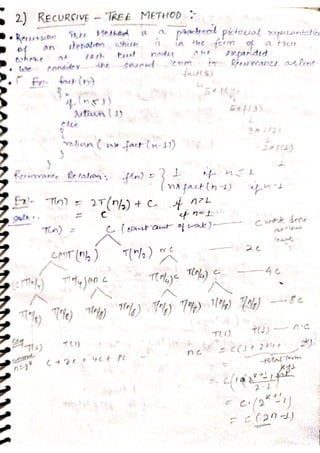 2) RECURSIVE - TREE METHOD :
• Recursion Tree Method is a pictorial representation
of an iteration which is in the form of a tree
where at each level nodes are expanded
• We consider the second term in Recurrence as root
Ex:- fact(n)
fact(5)
{
5*f(4)
if (n≤1)
return(1)
else
{
return (n*fact(n-1))
}
}
Recurrence Relation: f(n) = { 1 if n≤1
n*fact(n-1) if n>1
Ex:- T(n) = 2T(n/2) + C if n>1
= C if n=1
T(n) = C (constant amt of work)
C work done
at
level
T(n/2) T(n/2) 2c
T(n/4) T(n/4) 4c
T(n/8) T(n/8) T(n/8) T(n/8) T(n/8) T(n/8) T(n/8) 8c
T(1) T(1) T(1) T(1) n·c
c + 2c + 4c + 8c nc
total term
k+1
= c·(2^(k+1) -1)
= c(2n-1)